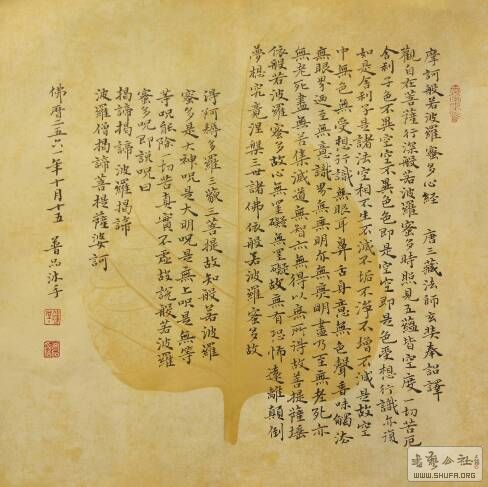 摩訶般若波羅蜜多心經 唐三藏法師玄奘奉詔譯
觀自在菩薩行深般若波羅蜜多時照見五蘊皆空度一切苦厄
舍利子色不異空空不異色色即是空空即是色受想行識亦復
如是舍利子是諸法空相不生不滅不垢不淨不增不減是故空
中無色無受想行識無眼耳鼻舌身意無色聲香味觸法
無眼界乃至無意識界無無明亦無無明盡乃至無老死亦
無老死盡無苦集滅道無智亦無得以無所得故菩提薩埵
依般若波羅蜜多故心無罣礙無罣礙故無有恐怖遠離顛倒
夢想究竟涅槃三世諸佛依般若波羅蜜多故
得阿耨多羅三藐三菩提故知般若波羅
蜜多是大神呪是大明呪是無上呪是無等
等呪能除一切苦真實不虛故說般若波羅
蜜多呪即說呪曰
揭諦揭諦波羅揭諦
波羅僧揭諦菩提薩婆訶
佛曆二五六一年十月十五 普品沐手
书艺公社
WWW.SHUFA.ORG